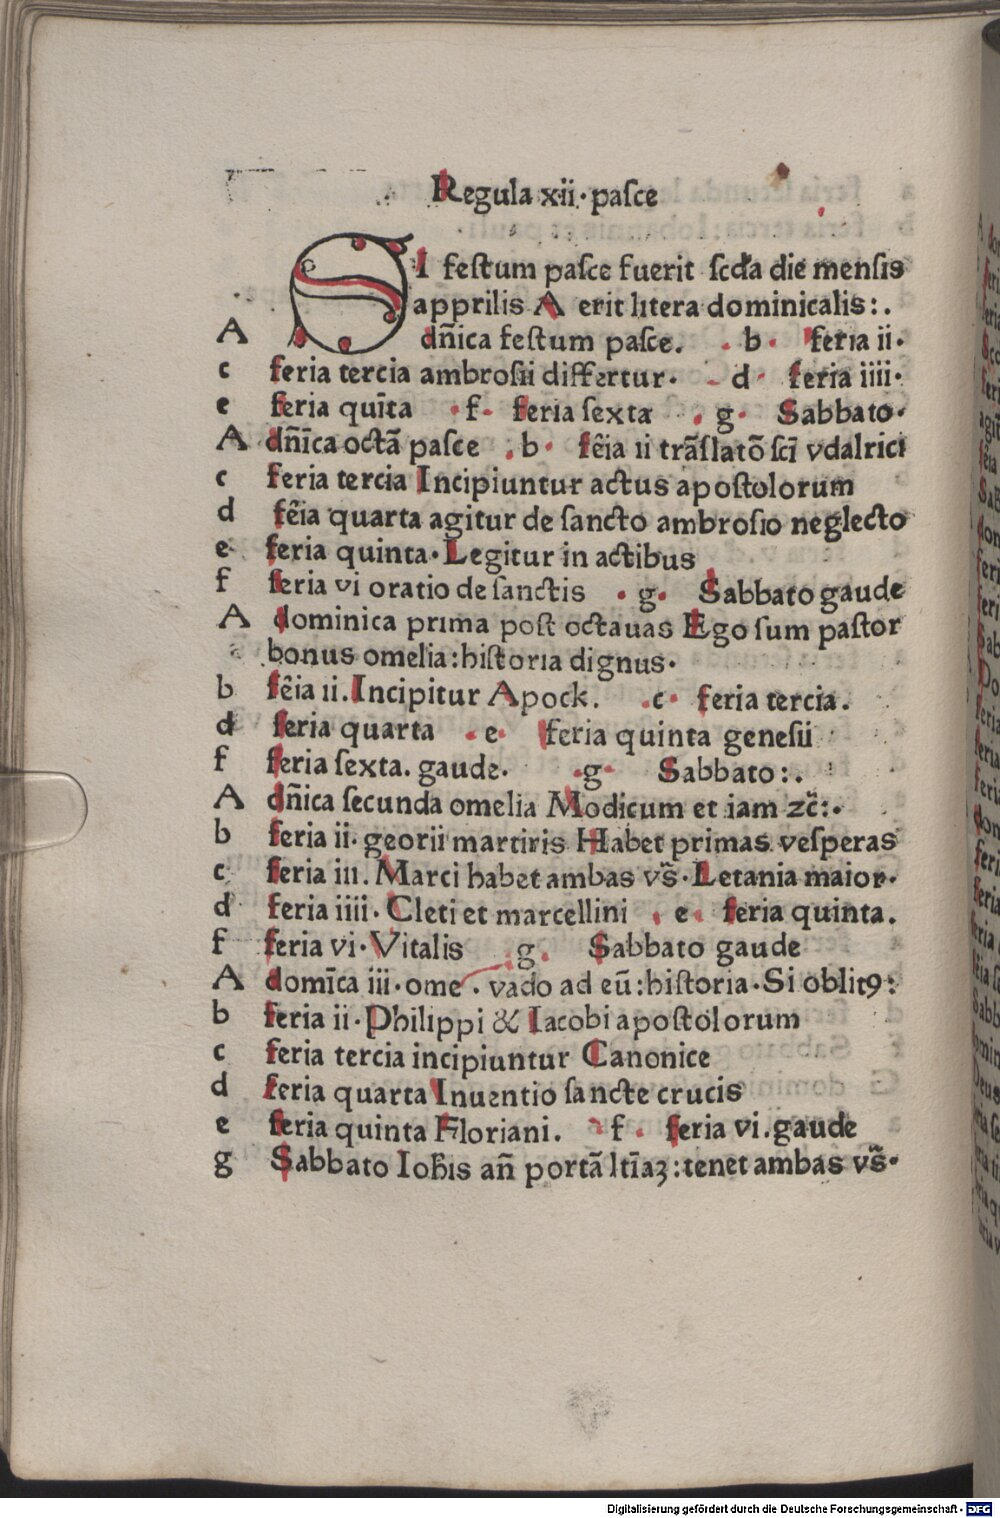 Regula xii·paſce
SI feſtum paſce fuerit ſcda die menſis
apprilis A erit litera dominicalis:.
A dn̄ica feſtum paſce. . b · feria ii·
c feria tercia ambroſii differtur· . d · feria iiii·
e feria quīta · f · feria ſexta . g · Sabbato·
A dn̄ica octā paſce . b · fēia ii trāſlatō ſcī vdalrici
c feria tercia Incipiuntur actus apoſtolorum
d fēia quarta agitur de ſancto ambroſio neglecto
e feria quinta·Legitur in actibus
f feria vi oratio de ſanctis · g · Sabbato gaude
A dominica prima poſt octauas Ego ſum paſtor
bonus omelia:hiſtoria dignus·
b fēia ii.Incipitur Apock. .c· feria tercia.
d feria quarta . e · feria quinta geneſii
f feria ſexta. gaude· ·g· Sabbato:.
A dn̄ica ſecunda omelia Modicum et iam ꝛc̄:·
b feria ii· georii martiris Habet primas veſperas
c feria iii.Marci habet ambas vs̄·Letania maior·
d feria iiii· Cleti et marcellini . e . feria quinta.
f feria vi·Vitalis . g . Sabbato gaude
A domīca iii·ome . vado ad eū:hiſtoria·Si oblitꝯ:
b feria ii·Philippi & Iacobi apoſtolorum
c feria tercia incipiuntur Canonice
d feria quarta Inuentio ſancte crucis
e feria quinta Floriani. · f . feria vi.gaude
g Sabbato Ioh̄is an̄ portā ltīaꝫ:tenet ambas vs̄·
Digitalisierung gefördert durch die Deutsche Forschungsgemeinschaft - DFG